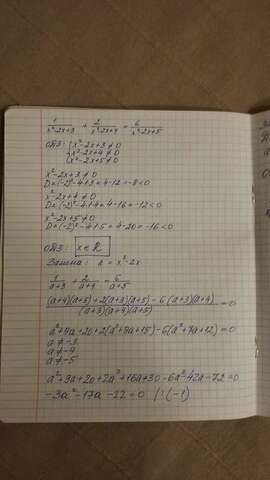 1/(x²-2x+3) + 2/(x²-2x+4) = 6/(x²-2x+5)
ОДЗ: {x²-2x+3≠0
{x²-2x+4≠0
{x²-2x+5≠0
x²-2x+3≠0
D=(-2)²-4·3=4-12=-8<0
x²-2x+4≠0
D=(-2)²-4·4=4-16=-12<0
x²-2x+5≠0
D=(-2)²-4·5=4-20=-16<0
ОДЗ: x∈R
Замена: a=x²-2x
1/(a+3) + 2/(a+4) = 6/(a+5)
((a+4)(a+5)+2(a+3)(a+5)-6(a+3)(a+4))/((a+3)(a+4)(a+5))=0
a²+9a+20+2(a²+8a+15)-6(a²+7a+12)=0
a≠-3
a≠-4
a≠-5
a²+9a+20+2a²+16a+30-6a²-42a-72=0
-3a²-17a-22=0 |:(-1)